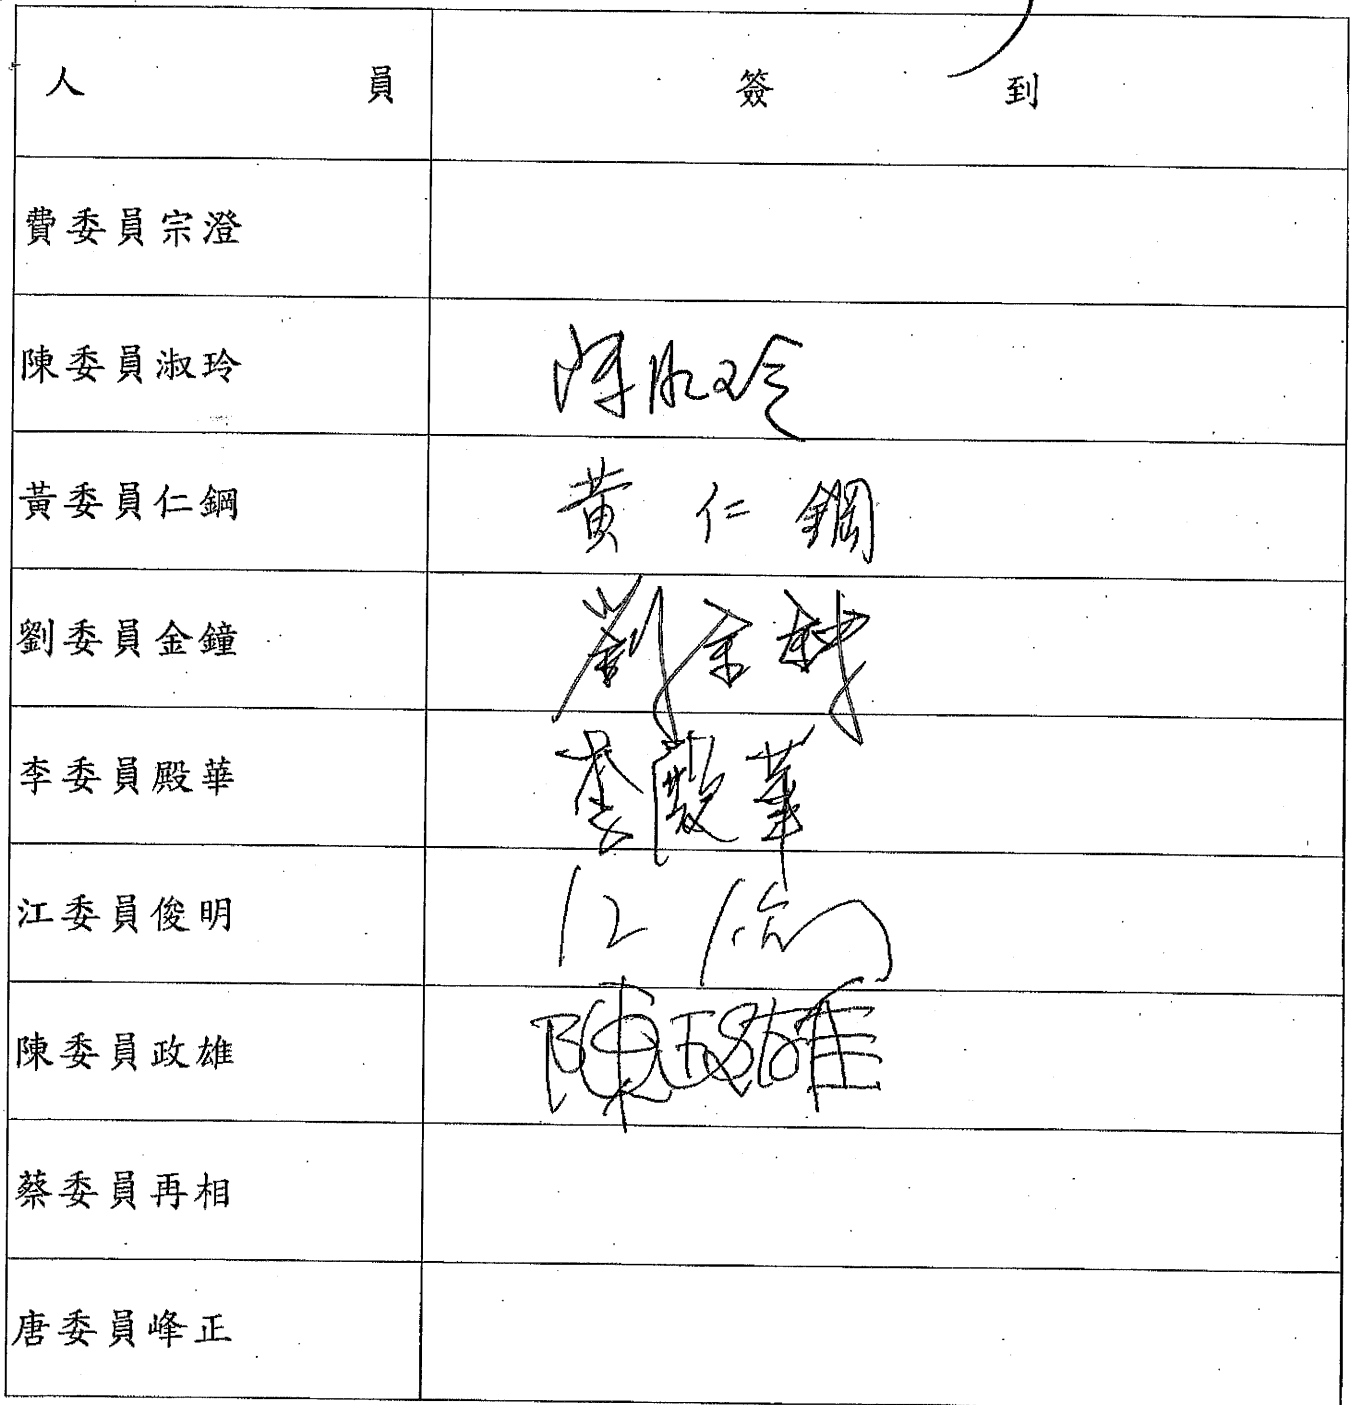 人 員 簽 到
費委員宗澄
陳委員淑玲 陳淑玲
黃委員仁鋼 黃仁鋼
劉委員金鐘 劉金鐘
李委員殿華 李殿華
江委員俊明 江
陳委員政雄 陳政雄
蔡委員再相
唐委員峰正